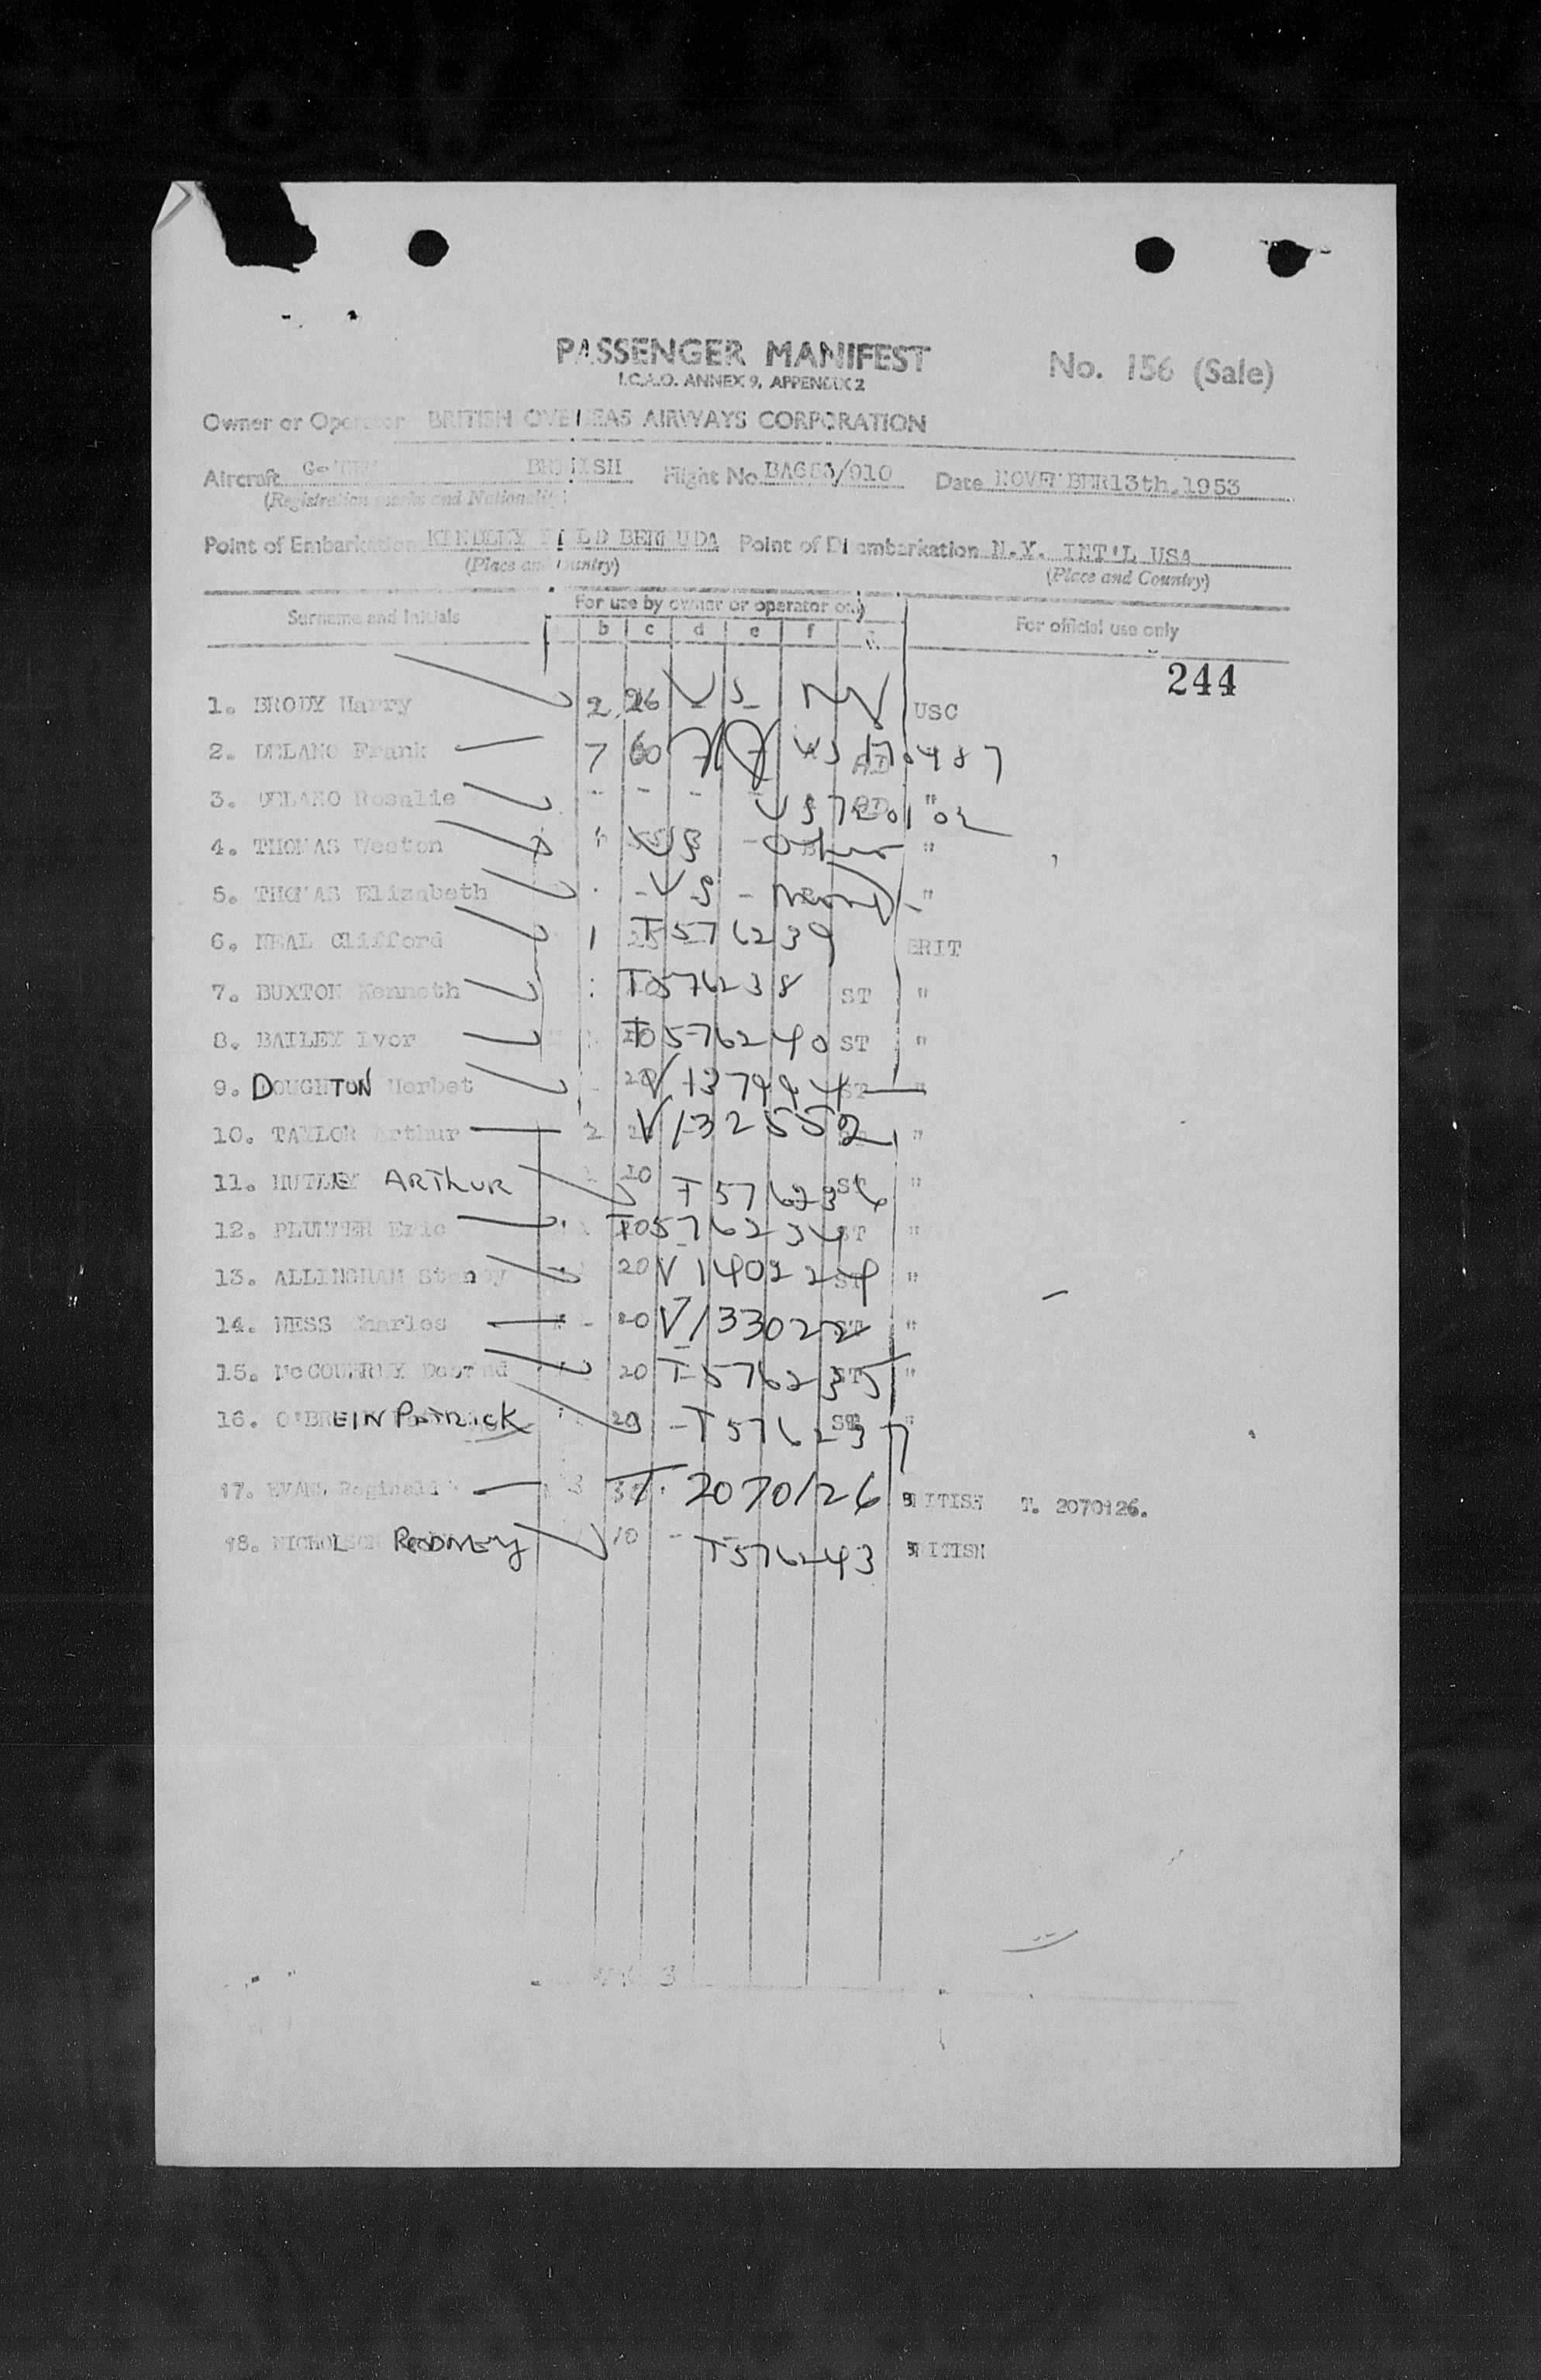 PASSENGER MANIFEST
No. 156 (Sale)
I.C.A.O. ANNEX 9, APPENDIX 2
Owner or Operator BRITISH OVERSEAS AIRWAYS CORPORATION
Aircraft BRITISH Flight No. Date NOVEMBER13th.1953
(Registration marks and Nationality)
Point of Embarkation KINDLEY FIELD BERMUDA Point of Disembarkation N.Y. INT'L USA
(Place and Country) (Place and Country)
Surname and Initials For use by owner or operator only For official use only
b c d e f
244
1. BRODY Harry 2 26 US NY USC
2. DELANO Frank 7 60
3. DELANO Rosalie "
4. THOMAS Weston US "
5. THOMAS Elizabeth US "
6. NEAL Clifford 1 T576239 BRIT
7. BUXTON Kenneth T576238 ST "
8. BAILEY Ivor T576240 ST "
9. DOUGHTON Herbet 20 V137994 ST "
10. TAYLOR Arthur 2 V132552 "
11. ARTHUR 20 T576236 ST "
12. PLUMMER Eric T576234 ST "
13. ALLINGHAM 20 V140224 ST "
14. NESS Charles 20 V133022 ST "
15. 20 T576235 ST "
16. O'BREIN PATRICK 20 T576237 ST "
17. EVANS Reginald 3 T. 2070126 BRITISH T. 2070126.
18. NICHOLSON RODNEY 10 T576243 BRITISH